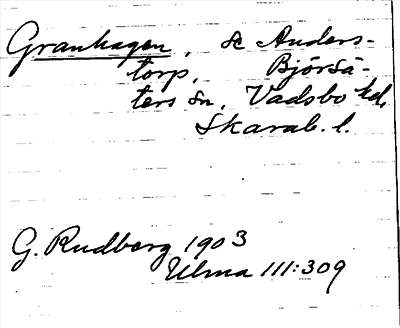 Granhagen, se Anders-
torp, Björsä-
ters sn, Vadsbo hd,
Skarab. l.
G. Rudberg 1903
Ulma 111:309